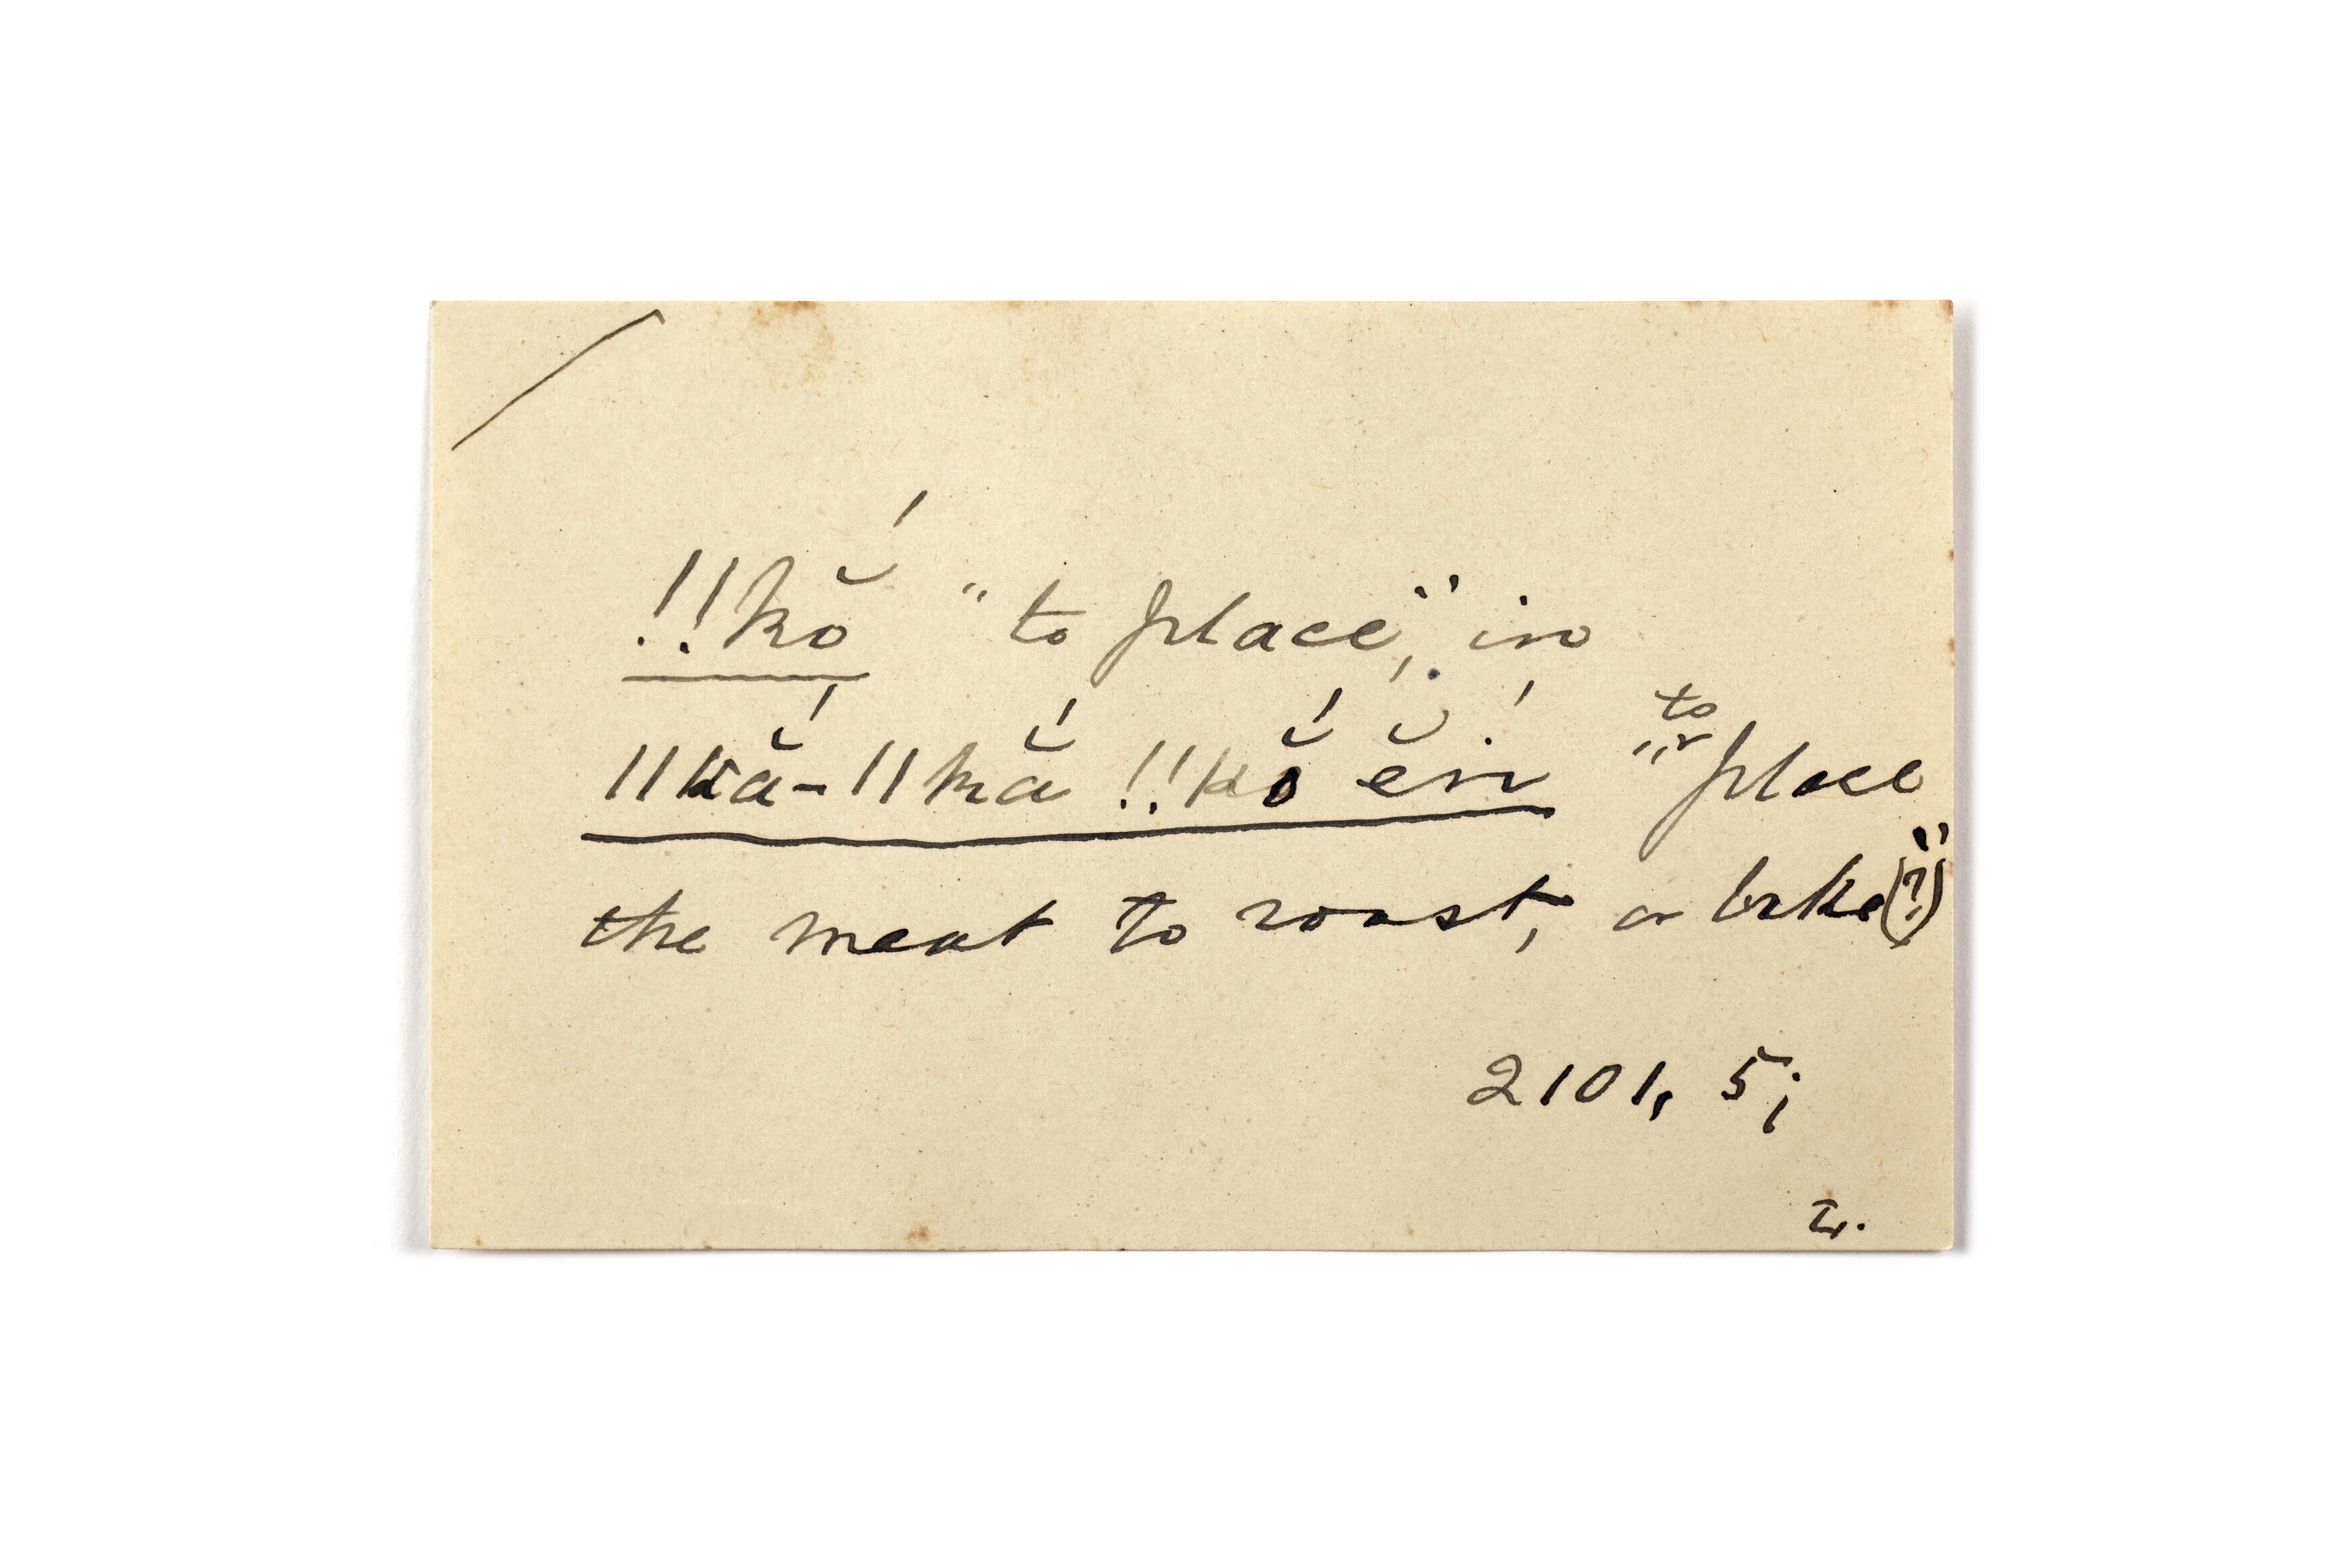 !!kŏ́ "to place," in
ǁkắ-ǁkắ !!kŏ́ ĕń "to place
the meat to roast, or bake (?)"
2101, 5;
L.